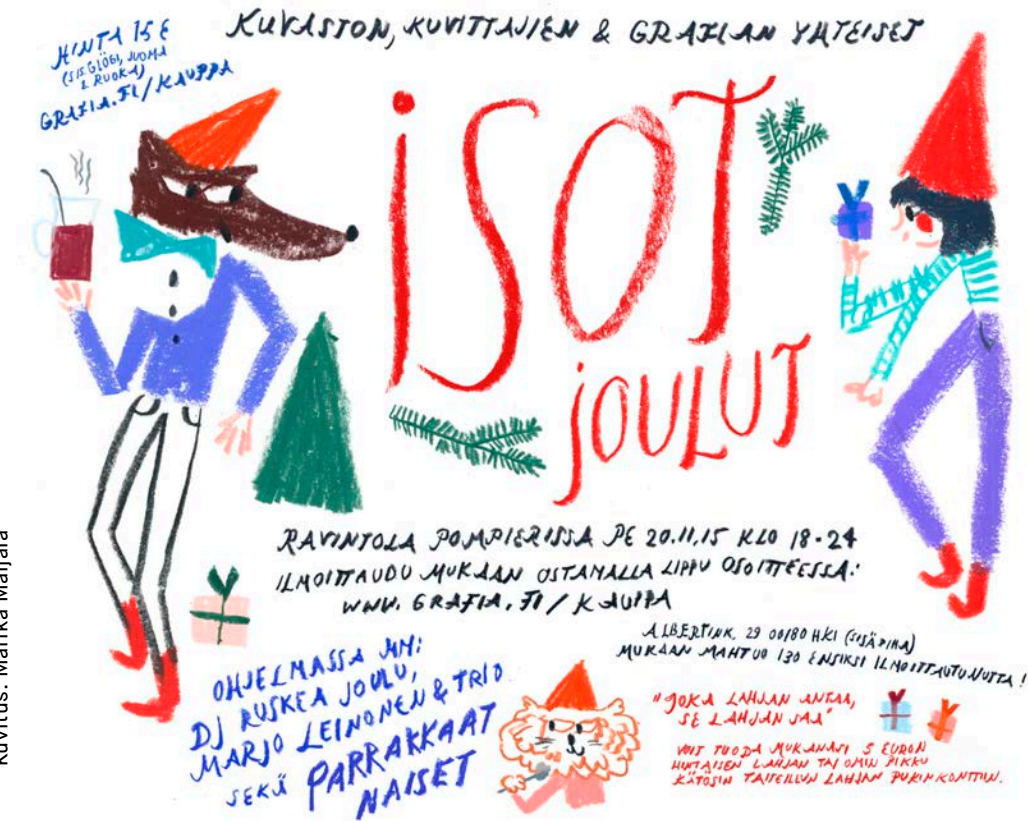 KUVASTON, KUVITTAJIEN & GRAFIAN YHTEISET
HINTA 15 €
(SIS. GLÖGI, JUOMA
& RUOKA)
GRAFIA.FI/KAUPPA
ISOT
JOULUT
RAVINTOLA POMPIERISSA PE 20.11.15 KLO 18-24
ILMOITTAUDU MUKAAN OSTAMALLA LIPPU OSOITTEESSA:
WWW.GRAFIA.FI/KAUPPA
ALBERTINK. 29 00180 HKI (SISÄPIHA)
MUKAAN MAHTUU 130 ENSIKSI ILMOITTAUTUNUTTA!
OHJELMASSA MM:
DJ RUSKEA JOULU,
MARJO LEINONEN & TRIO
SEKÄ PARRAKKAAT
NAISET
"JOKA LAHJAN ANTAA,
SE LAHJAN SAA"
VOIT TUODA MUKANASI 5 EURON
HINTAISEN LAHJAN TAI OMIN PIKKU
KÄTÖSIN TAITEILLUN LAHJAN PUKINKONTTIIN.
Kuvitus: Marika Maijala